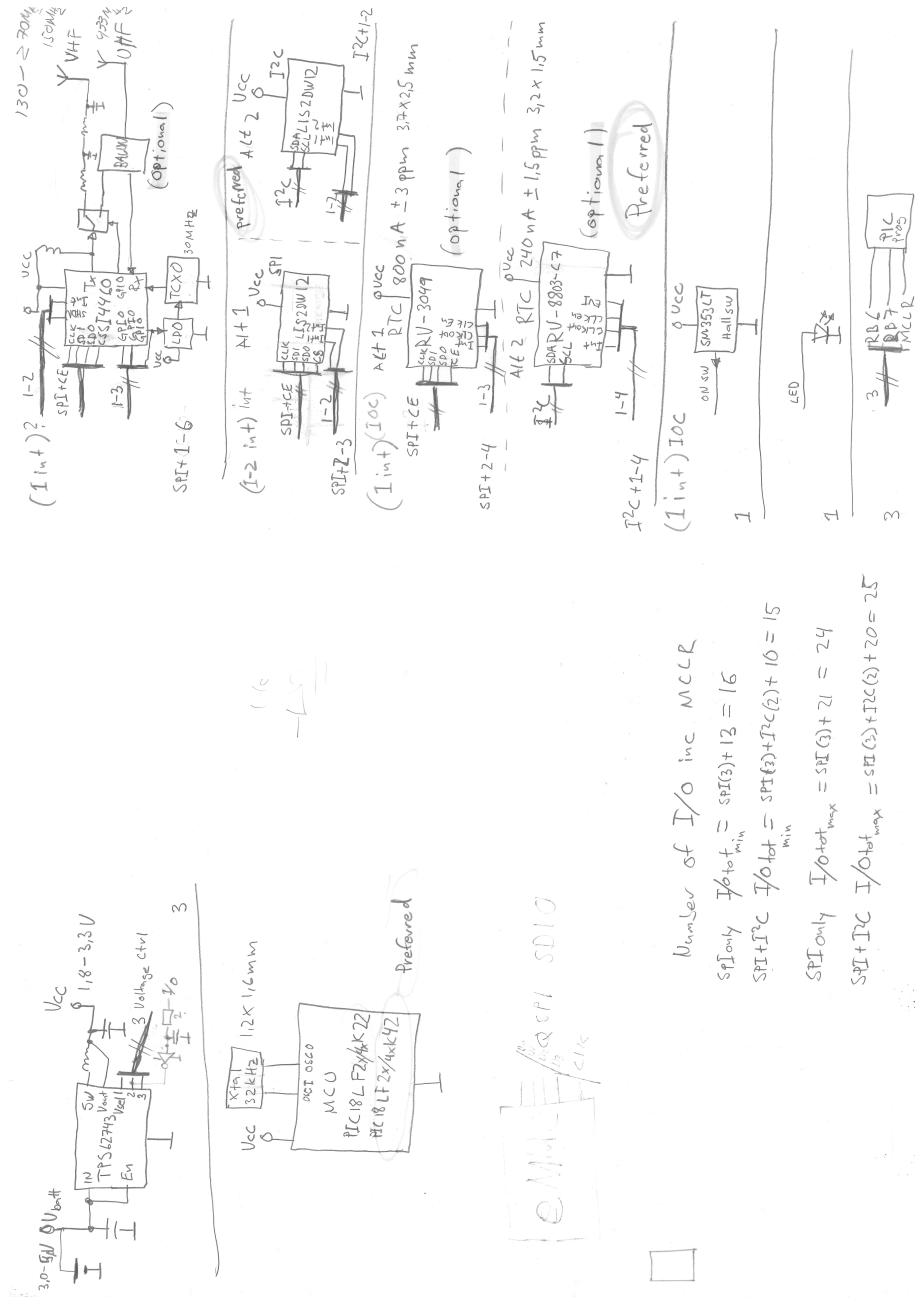 3,0-
Vbatt
IN
En
TPS62743
SW
Vout
Vsel1
2
3
Vcc
1,8-3,3V
3 Voltage Ctrl
I/O
3
Vcc
Xtal
32kHz
1,2 x 1,6mm
OSCI OSCO
MCU
PIC18LF2x/4xK22
PIC18LF2x/4xK42
Preferred
eMMC
QSPI SDIO
Clk
Number of I/O inc MCLR
SPI only I/Otot min = SPI(3)+13 = 16
SPI+I²C I/Otot min = SPI(3)+I²C(2)+10 = 15
SPI only I/Otot max = SPI(3)+21 = 24
SPI+I²C I/Otot max = SPI(3)+I2C(2)+20 = 25
(1 int)?
1-2
SPI+CE
1-3
SPI+1-6
Vcc
CLK
SDI
SDO
CS
SI4460
Tx
Rx
GPIO
GPIO
GPIO
GPIO
Vcc
LDO
TCXO
30MHz
BALUN
(optional)
VHF
UHF
130-270MHz
150MHz
(1-2 int) int
Alt 1
Vcc
SPI
SPI+CE
CLK
SDI
SDO
CS
LIS2DW12
1-2
SPI+2-3
preferred
Alt 2
Vcc
I²C
SDA
SCL
LIS2DW12
I²C
1-2
I²C+1-2
(1 int)(IOC)
Alt 1
Vcc
RTC 800nA ±3ppm 3,7x2,5mm
SPI+CE
CLK
SDI
SDO
CE
RV-3049
(optional)
1-3
SPI+2-4
Alt 2
RTC
Vcc
240nA ±1,5ppm 3,2x1,5mm
SDA
SCL
RV-8803-C7
I²C
(optional)
Preferred
1-4
I²C+1-4
(1 int) IOC
Vcc
ON SW
SM353LT
Hall sw
1
LED
1
3
RB6
RB7
MCLR
PIC
prog
3